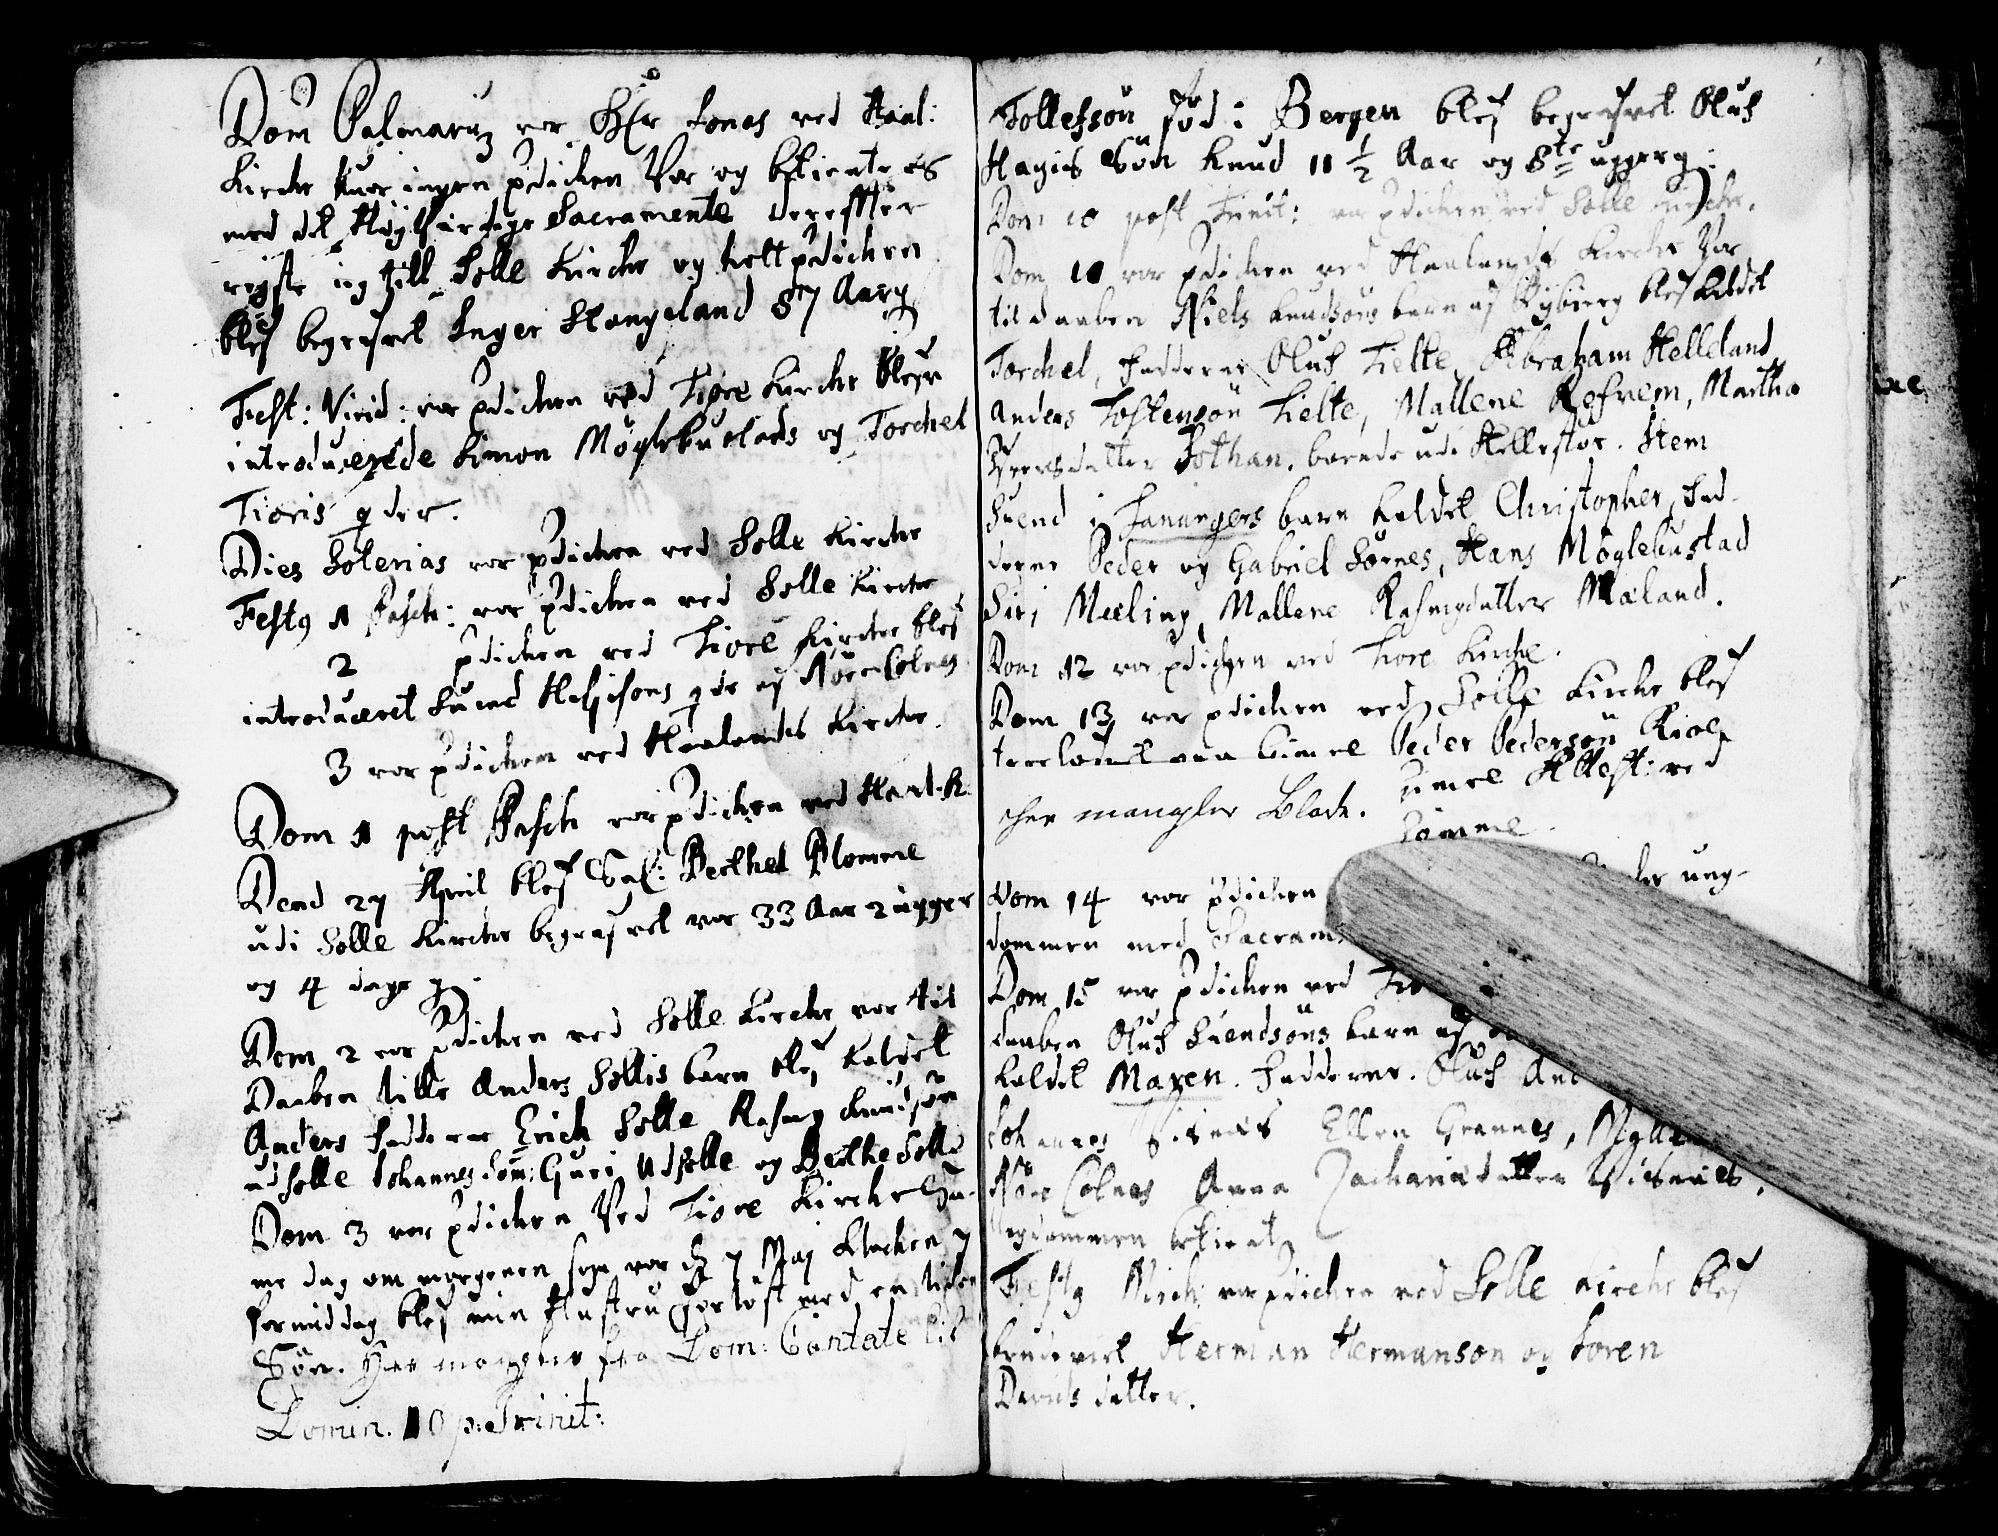 Dom Palmaru var Her Jonas ved Haal:
Kirche huor ingen pdichen Var og btiente os
med det Høgværdige Sacramente dereffter
reyste ieg till Solle Kirche og holt pdichen
blef begrafvet Inger Stangeland 87 Aar g
Fest: Virid: var pdichen ved Tiore Kirche blefve
introducerede Simon Møglebustads og Torchel
Tioris qder.
Dies Solenias var pdichen ved Solle Kirche
Fest9 1 Pasch: var pdichen ved Solle Kirche
2 pdichen ved Tiore Kirche blef
introduceret Suend Helgisons qde af Nore Colnes
3 var pdichen ved Haalands Kirche.
Dom 1 post Pasch var pdichen ved Haal. K.
Dend 27 April blef Sal: Berthel Blomme
udi Solle Kirche begrafvet var 33 Aar 2 ugger
og 4 dage g.
Dom 2 var pdichen ved Solle Kirche var til
Daaben lille Anders Sollis barn blef kaldet
Anders fadderne Erich Solle Rasmg Knudsøn
udsolle Johannes Guri Udsolle og Berthe Solle
Dom 3 var pdichen Ved Tiore Kirche
me dag om morgenen som var d 7 Maj Klochen 7
formiddag blef min Hustru forløst med en liden
Søn. Her mangler fra Dom: Cantate til
Domin. 10 p. Trinit:
Tollefsøn fød i Bergen blef begrafvet Oluf
Hagis Søn Knud 11 1/2 Aar og 8te ugger g:
Dom 10 post Trinit: var pdichen ved Solle Kirche.
Dom 10 var pdichen ved Haalands Kirche Var
til daaben Niels Knudsøns barn af Rybierg blef kaldet
Torchel, Fadderne Oluf Tielte, Abraham Helleland
Anders Tostensøn Tielte, Mallene Refvem, Martha
datter Jothan. boende udi Hellestør. Item
Suend i Jananger barn kaldet Christopher, Fad-
derne Peder og Gabriel Sørnes, Hans Møglebustad
Siri Mæling, Mallene Rasmgdatter Mæland.
Dom 12 var pdichen ved Tiore Kirche.
Dom 13 var pdichen ved Solle Kirche blef
Peder Pedersøn
her mangler Blade.
Dom 14 var pdichen ung-
dommen med Sacram
Dom 15 var pdichen ved
daaben Oluf Suendsøns barn af
kaldet Maren. Fadderne. Oluf And
Johannes Visnæs Ellen Grannes,
Nøre Colnes Anna Zachariædatter Visnæs,
Ungdommen btient
Fest9 Mich: var pdichen ved Solle Kirche blef
brudeviet Herman Hermansøn og Soren
Davids datter.